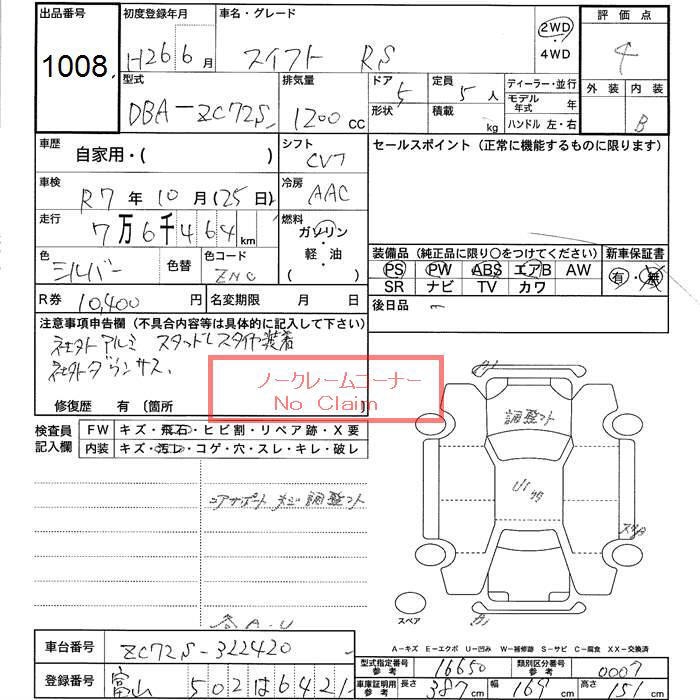 出品番号 1008
初度登録年月 H26 6月
車名・グレード スイフト RS
2WD ・ 4WD
評価点 4
外装 内装 B
型式 DBA-ZC72S
排気量 1200 cc
ドア 5 形状
定員 5人 積載 kg
ディーラー・並行
モデル年式 年
ハンドル 左・右
車歴 自家用・( )
シフト CVT
セールスポイント (正常に機能するものに限ります)
車検 R7年10月(25日)
冷房 AAC
走行 7万6千464km
燃料 ガソリン・軽油 ( )
色 シルバー 色替 色コード ZNC
装備品 (純正品に限り○をつけてください) 新車保証書
PS PW ABS エアB AW 有・無
SR ナビ TV カワ
R券 10,400円 名変期限 月 日
後日品
注意事項申告欄 (不具合内容等は具体的に記入して下さい)
社外アルミ スタッドレスタイヤ装着
社外ダウンサス.
ノークレームコーナー
No Claim
修復歴 有 (箇所
検査員記入欄 FW キズ・飛石・ヒビ割・リペア跡・X要
内装 キズ・汚レ・コゲ・穴・スレ・キレ・破レ
調整マト
U1
コアサポート ネジ調整マト
各A・U
スペア
A1
A-キズ E-エクボ U-凹み W-補修跡 S-サビ C-腐食 XX-交換済
車台番号 ZC72S-322420
型式指定番号 参考 16650 類別区分番号 参考 0007
登録番号 富山 502 は 6421
車庫証明用 参考 長さ 387cm 幅 169cm 高さ 151cm